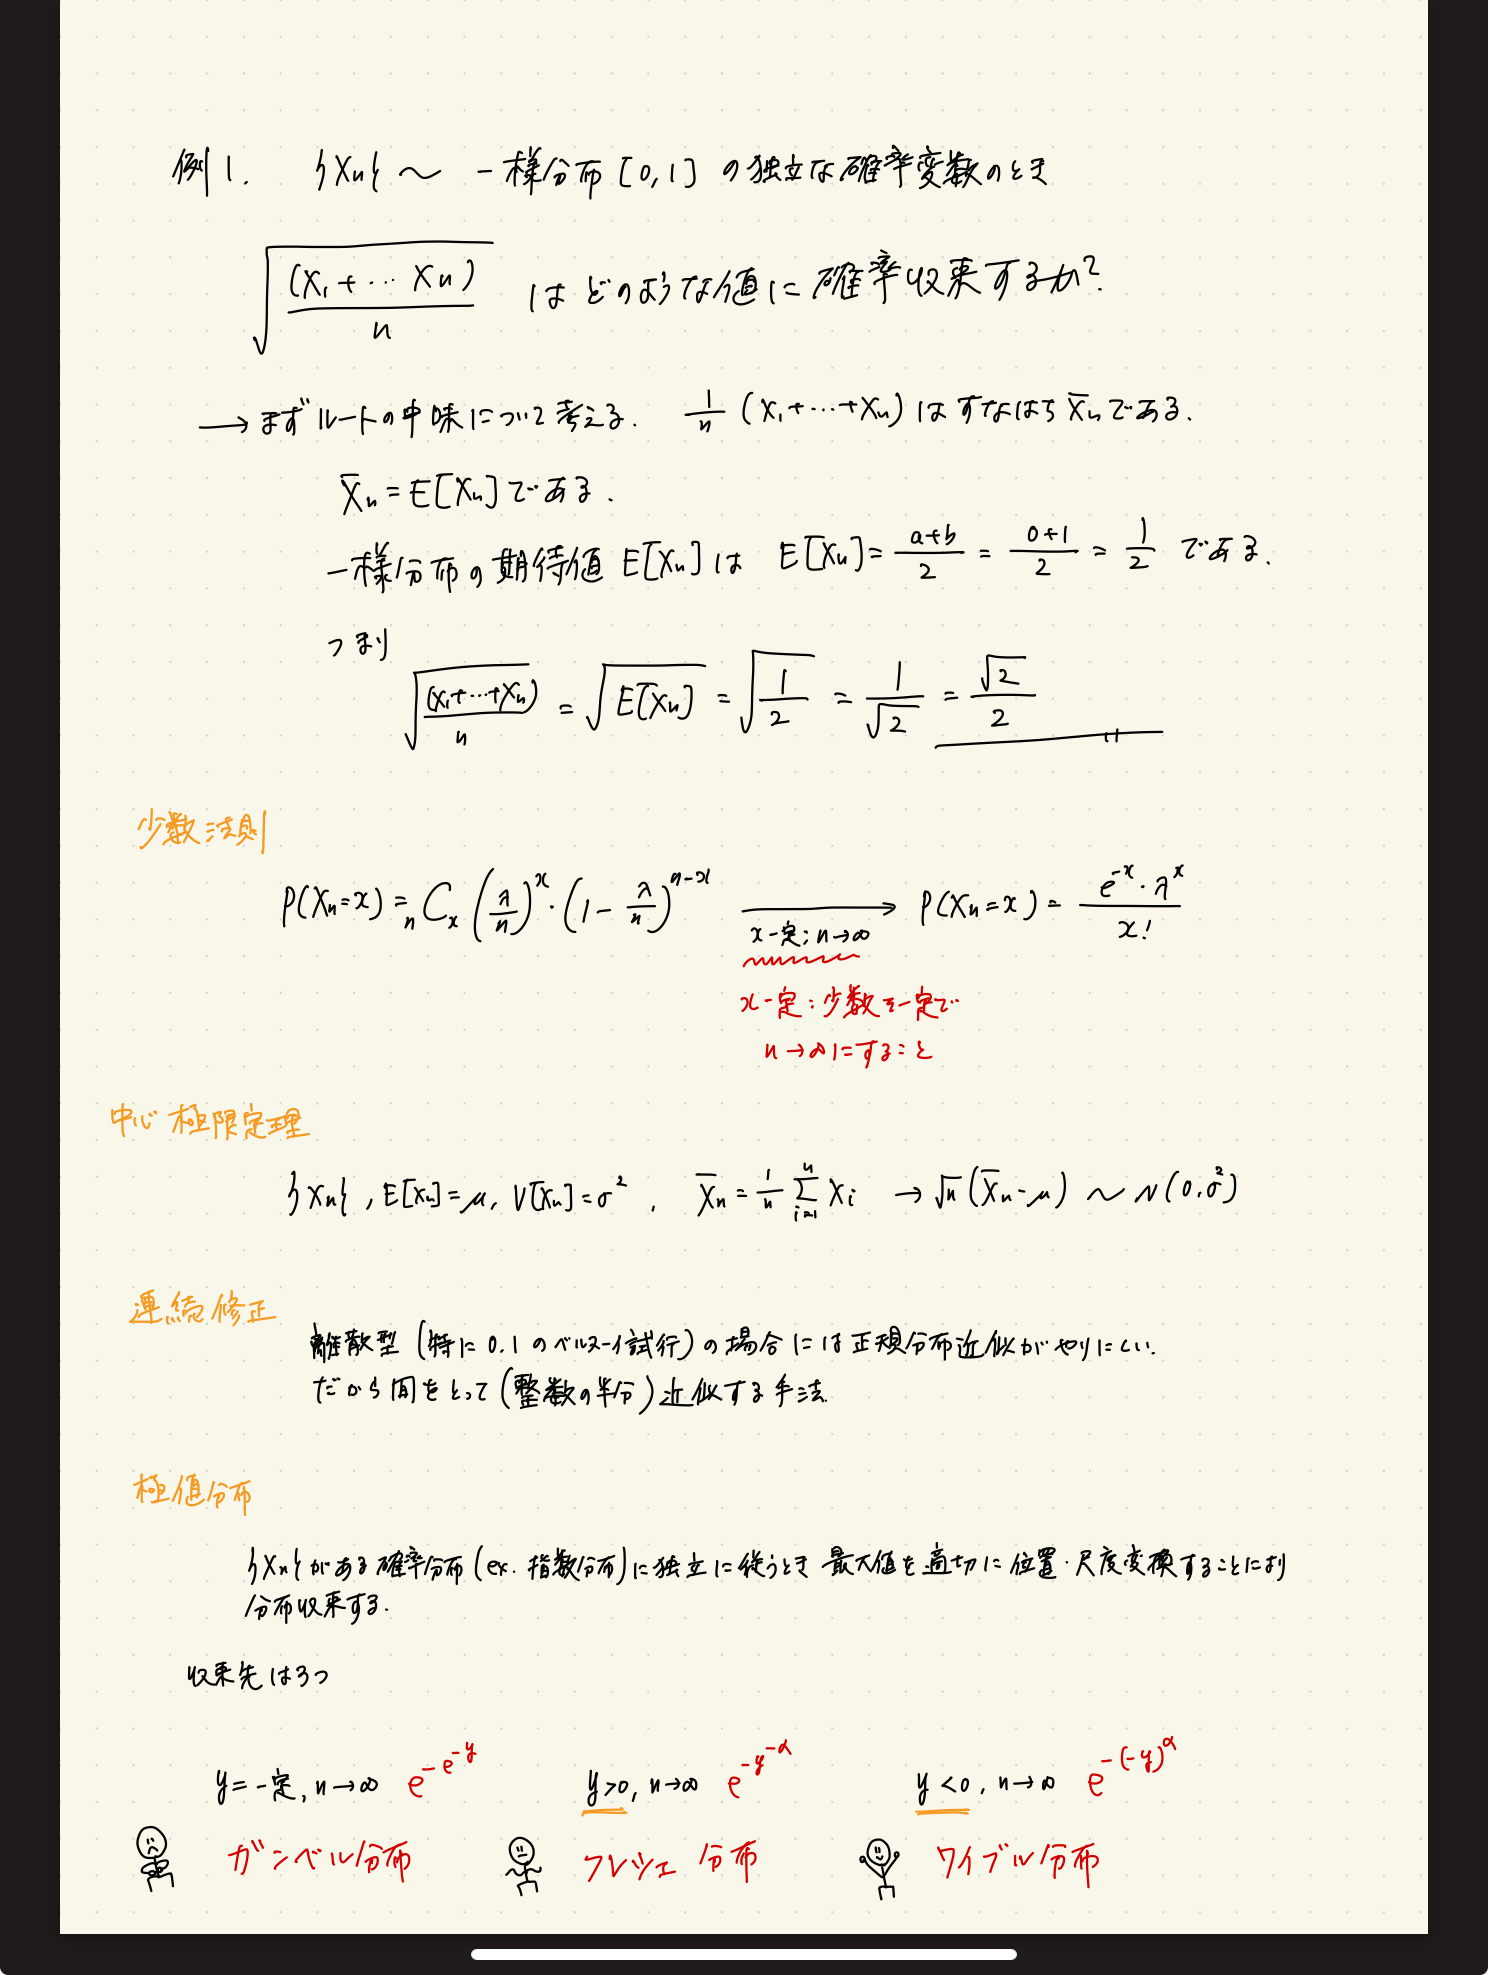 例1. {Xn} ～ 一様分布[0,1] の独立な確率変数のとき
√((X₁+… Xn)/n) はどのような値に確率収束するか?
→まずルートの中味について考える. 1/n (X₁+…+Xn) はすなはち X̄nである.
X̄n = E[Xn]である.
一様分布の期待値 E[Xn] は E[Xn] = (a+b)/2 = (0+1)/2 = 1/2 である.
つまり
√((X₁+…+Xn)/n) = √(E[Xn]) = √(1/2) = 1/√2 = √2/2 〃
少数法則
P(Xn=x) = nCx (λ/n)^x・(1-λ/n)^(n-x) → P(Xn=x) = (e^(-x)・λ^x)/x!
x一定; n→∞
x一定:少数を一定で
n→∞にすること
中心極限定理
{Xn}, E[Xn]=μ, V[Xn]=σ², X̄n = 1/n Σ_(i=1)^n Xi → √n(X̄n-μ) ～ N(0,σ²)
連続修正
離散型(特に0.1のベルヌーイ試行)の場合には正規分布近似がやりにくい.
だから間をとって(整数の半分)近似する手法.
極値分布
{Xn}がある確率分布(ex. 指数分布)に独立に従うとき 最大値を適切に位置・尺度変換することにより
分布収束する.
収束先は3つ
y=一定, n→∞ e^(-e^(-y)) y>0, n→∞ e^(-y^(-α)) y<0, n→∞ e^(-(-y)^α)
ガンベル分布 フレシェ分布 ワイブル分布